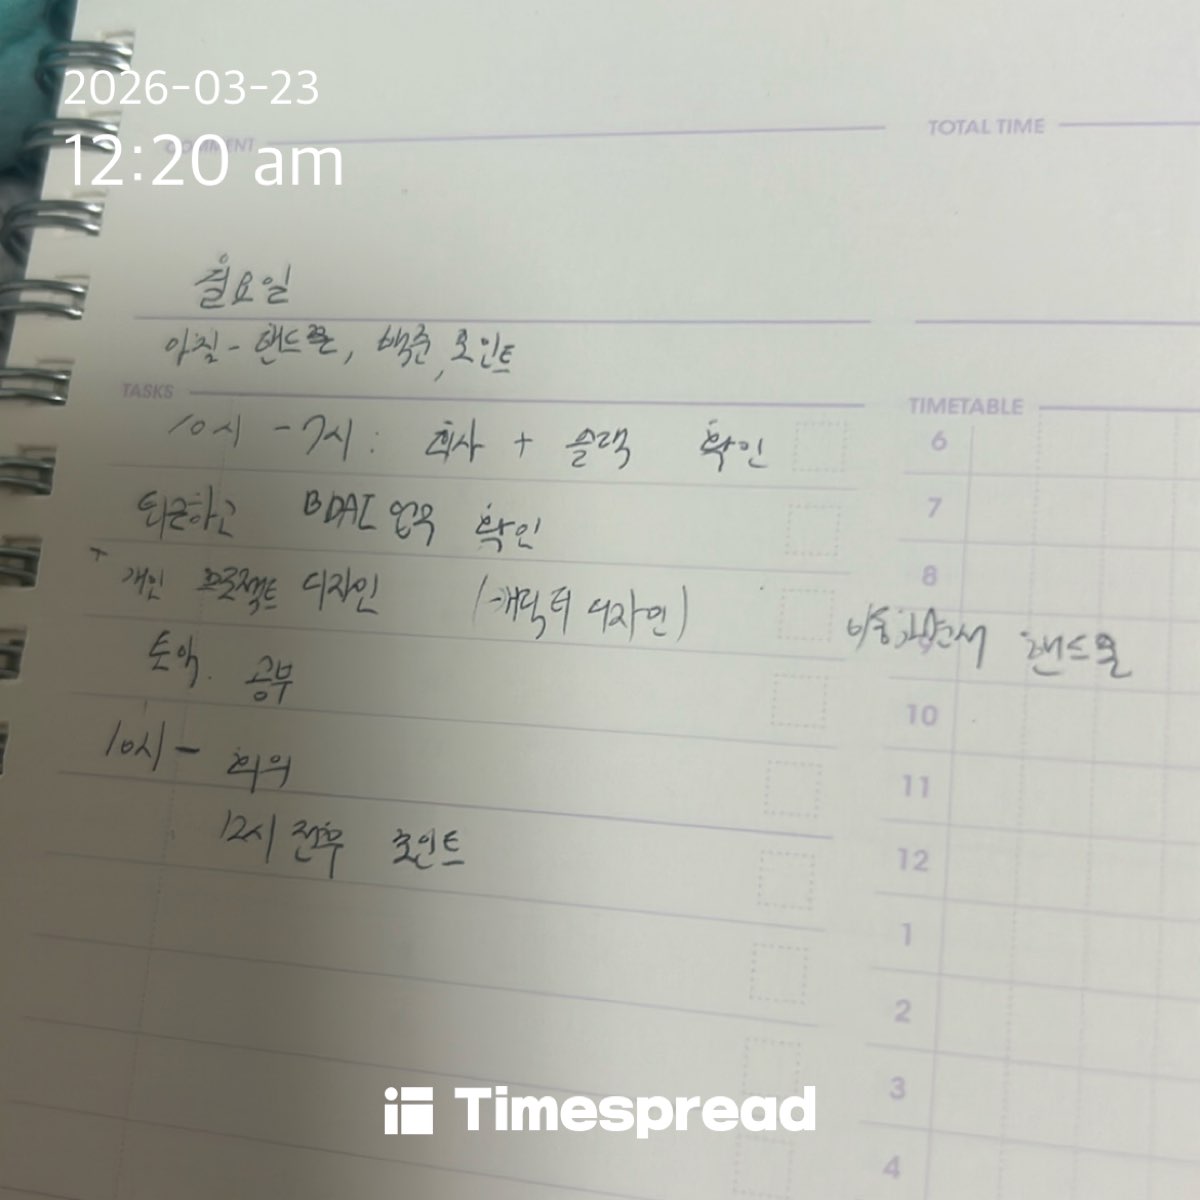 2026-03-23
COMMENT
12:20 am
TOTAL TIME
월요일
아침 - 핸드폰, 백준, 포인트
TASKS
TIMETABLE
10시 - 7시 : 회사 + 슬랙 확인
6
퇴근하고 BDAI 업무 확인
7
+ 개인 프로젝트 디자인 (캐릭터 디자인)
8
이동하면서 핸드폰
9
토익. 공부
10
10시 - 회의
11
12시 전후 포인트
12
1
2
3
4
Timespread